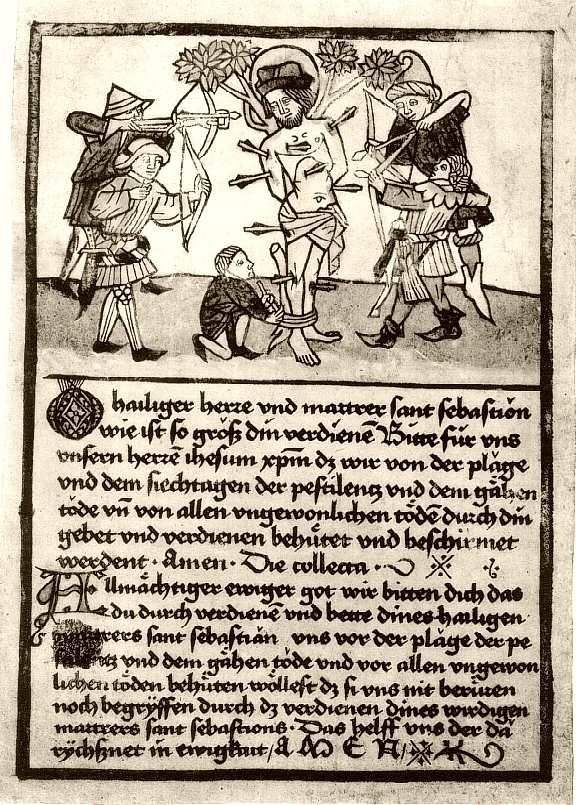 O hailiger herre vnd martrer sant sebastion
wie ist so groß din verdienē Bitte für vns
vnsern herrē ihesum xp̄m dz wir von der plāge
vnd dem siechtagen der pestilentz vnd dem gāhen
tōde vn̄ von allen vngewonlichen tōdē durch din
gebet vnd verdienen behütet vnd beschirmet
werdent · Amen · Die collecta ·
Allmāchtiger ewiger got wir bitten dich das
du durch verdienē vnd bette dines hailigen
martrers sant sebastiān vns vor der plāge der pe
stilentz vnd dem gāhen tōde vnd vor allen vngewon
lichen tōden behüten wōllest dz si vns nit berüren
noch begryffen durch dz verdienen dines wirdigen
martrers sant sebastions · Das helff vns der dā
rychßnet in ewigkait / A M E N /